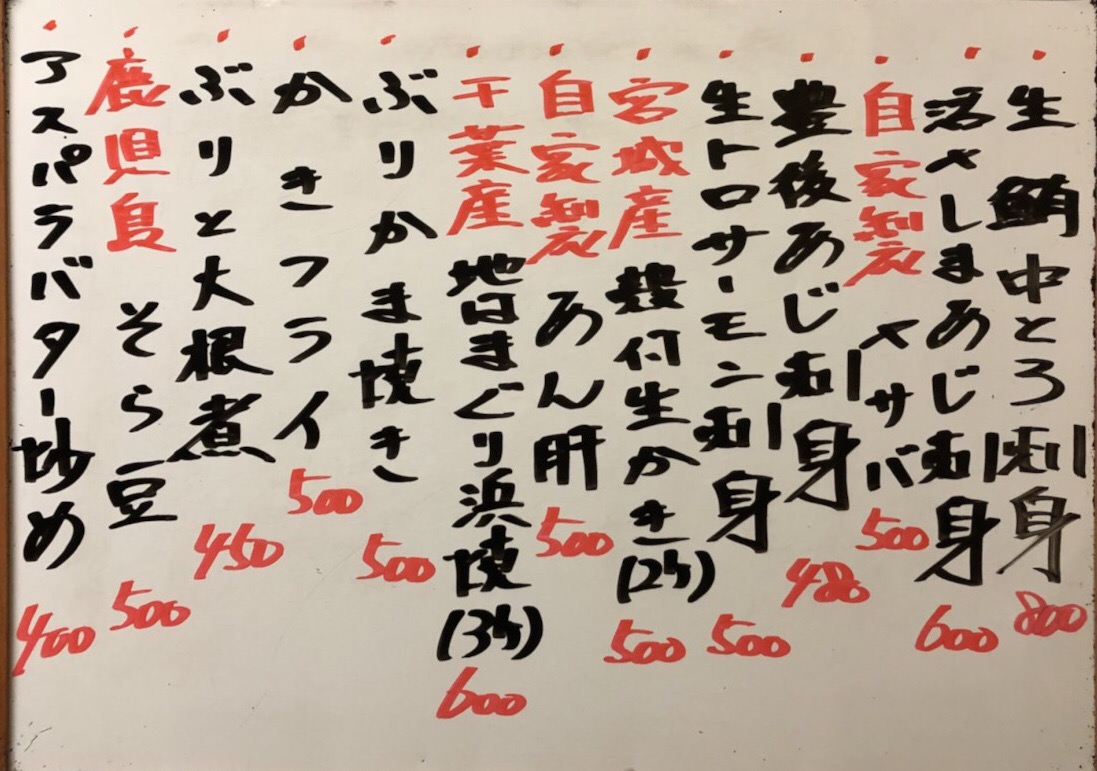 生鮪中とろ刺身 800
活〆しまあじ刺身 600
自家製〆サバ 500
豊後あじ刺身 480
生トロサーモン刺身 500
宮城産 殻付生かき(2ケ) 500
自家製 あん肝 500
千葉産 地はまぐり浜焼(3ケ) 600
ぶりかま焼き 500
かきフライ 500
ぶりと大根煮 450
鹿児島 そら豆 500
アスパラバター炒め 400